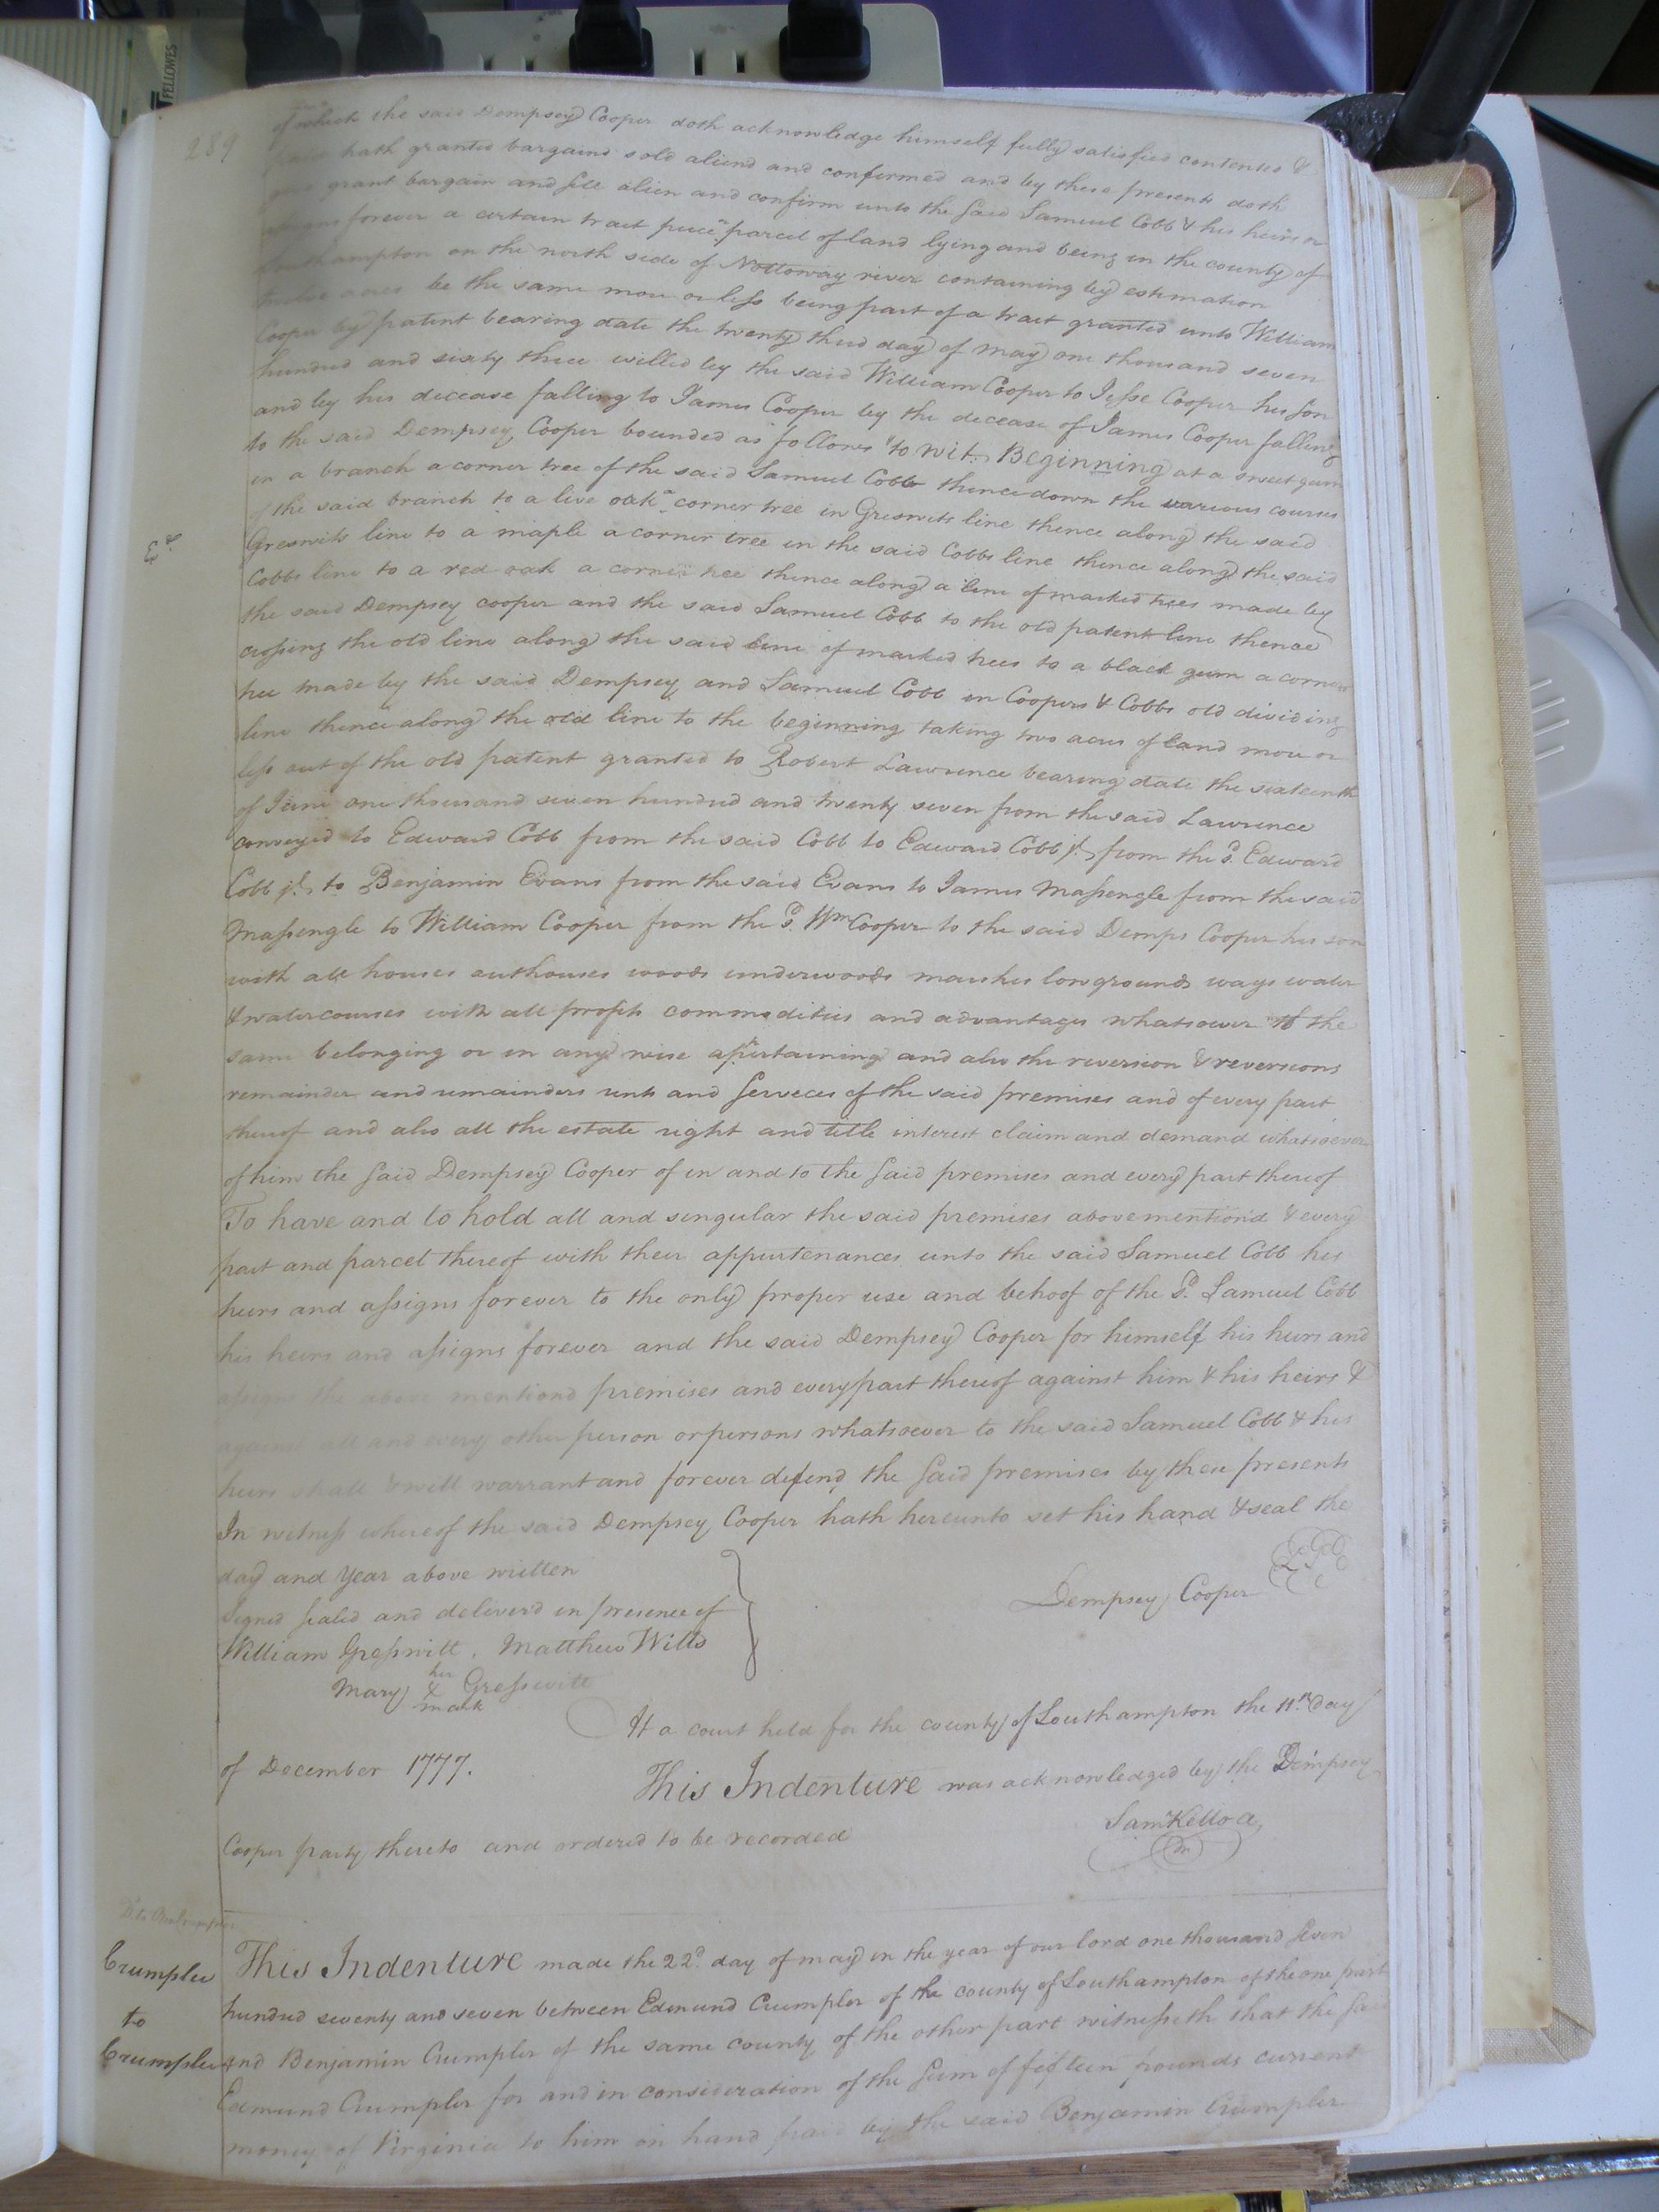 FELLOWES
289
of which the said Dempsey Cooper doth acknowledge himself fully satisfied contented &
hath granted bargaind sold aliend and confirmed and by these presents doth
grant bargain and sell alien and confirm unto the said Samuel Cobb & his heirs or
forever a certain tract piece or parcel of land lying and being in the county of
Southampton on the north side of Nottoway river containing by estimation
twelve acres be the same more or less being part of a tract granted unto William
Cooper by patent bearing date the twenty third day of may one thousand seven
hundred and sixty three willed by the said William Cooper to Jesse Cooper his son
and by his decease falling to James Cooper by the decease of James Cooper falling
to the said Dempsey Cooper bounded as follows to wit. Beginning at a sweet gum
in a branch a corner tree of the said Samuel Cobb thence down the various courses
of the said branch to a live oak a corner tree in Greswits line thence along the said
Greswits line to a maple a corner tree in the said Cobbs line thence along the said
Cobbs line to a red oak a corner tree thence along a line of marked trees made by
the said Dempsey cooper and the said Samuel Cobb to the old patent line thence
crossing the old line along the said line of marked trees to a black gum a corner
tree made by the said Dempsey and Samuel Cobb in Coopers & Cobbs old dividing
line thence along the old line to the beginning taking two acres of land more or
less out of the old patent granted to Robert Lawrence bearing date the sixteenth
of June one thousand seven hundred and twenty seven from the said Lawrence
conveyed to Edward Cobb from the said Cobb to Edward Cobb jr. from the sd. Edward
Cobb jr. to Benjamin Evans from the said Evans to James Massengle from the said
Massengle to William Cooper from the sd. Wm Cooper to the said Demps Cooper his son
with all houses outhouses woods underwoods marshes lowgrounds ways water
& watercourses with all profits commodities and advantages whatsoever to the
same belonging or in any wise appertaining and also the reversion & reversions
remainder and remainders rents and services of the said premises and of every part
thereof and also all the estate right and title interest claim and demand whatsoever
of him the said Dempsey Cooper of in and to the said premises and every part thereof
To have and to hold all and singular the said premises abovementiond & every
part and parcel thereof with their appurtenances unto the said Samuel Cobb his
heirs and assigns forever to the only proper use and behoof of the sd. Samuel Cobb
his heirs and assigns forever and the said Dempsey Cooper for himself his heirs and
assigns the above mentiond premises and every part thereof against him & his heirs &
against all and every other person or persons whatsoever to the said Samuel Cobb & his
heirs shall & will warrant and forever defend the said premises by these presents
In witness whereof the said Dempsey Cooper hath hereunto set his hand & seal the
day and year above written
Dempsey Cooper
Signed sealed and deliverd in presence of
William Gresswitt. Matthew Wills
her
Mary X Gresswitt
mark
At a court held for the county of Southampton the 11th. day
of December 1777.
This Indenture was acknowledged by the Dempsey
Cooper party thereto and ordered to be recorded
Saml Kello
Crumpler
to
Crumpler
This Indenture made the 22d. day of may in the year of our lord one thousand seven
hundred seventy and seven between Edmund Crumpler of the county of Southampton of the one part
and Benjamin Crumpler of the same county of the other part witnesseth that the said
Edmund Crumpler for and in consideration of the sum of fifteen pounds current
money of Virginia to him in hand paid by the said Benjamin Crumpler